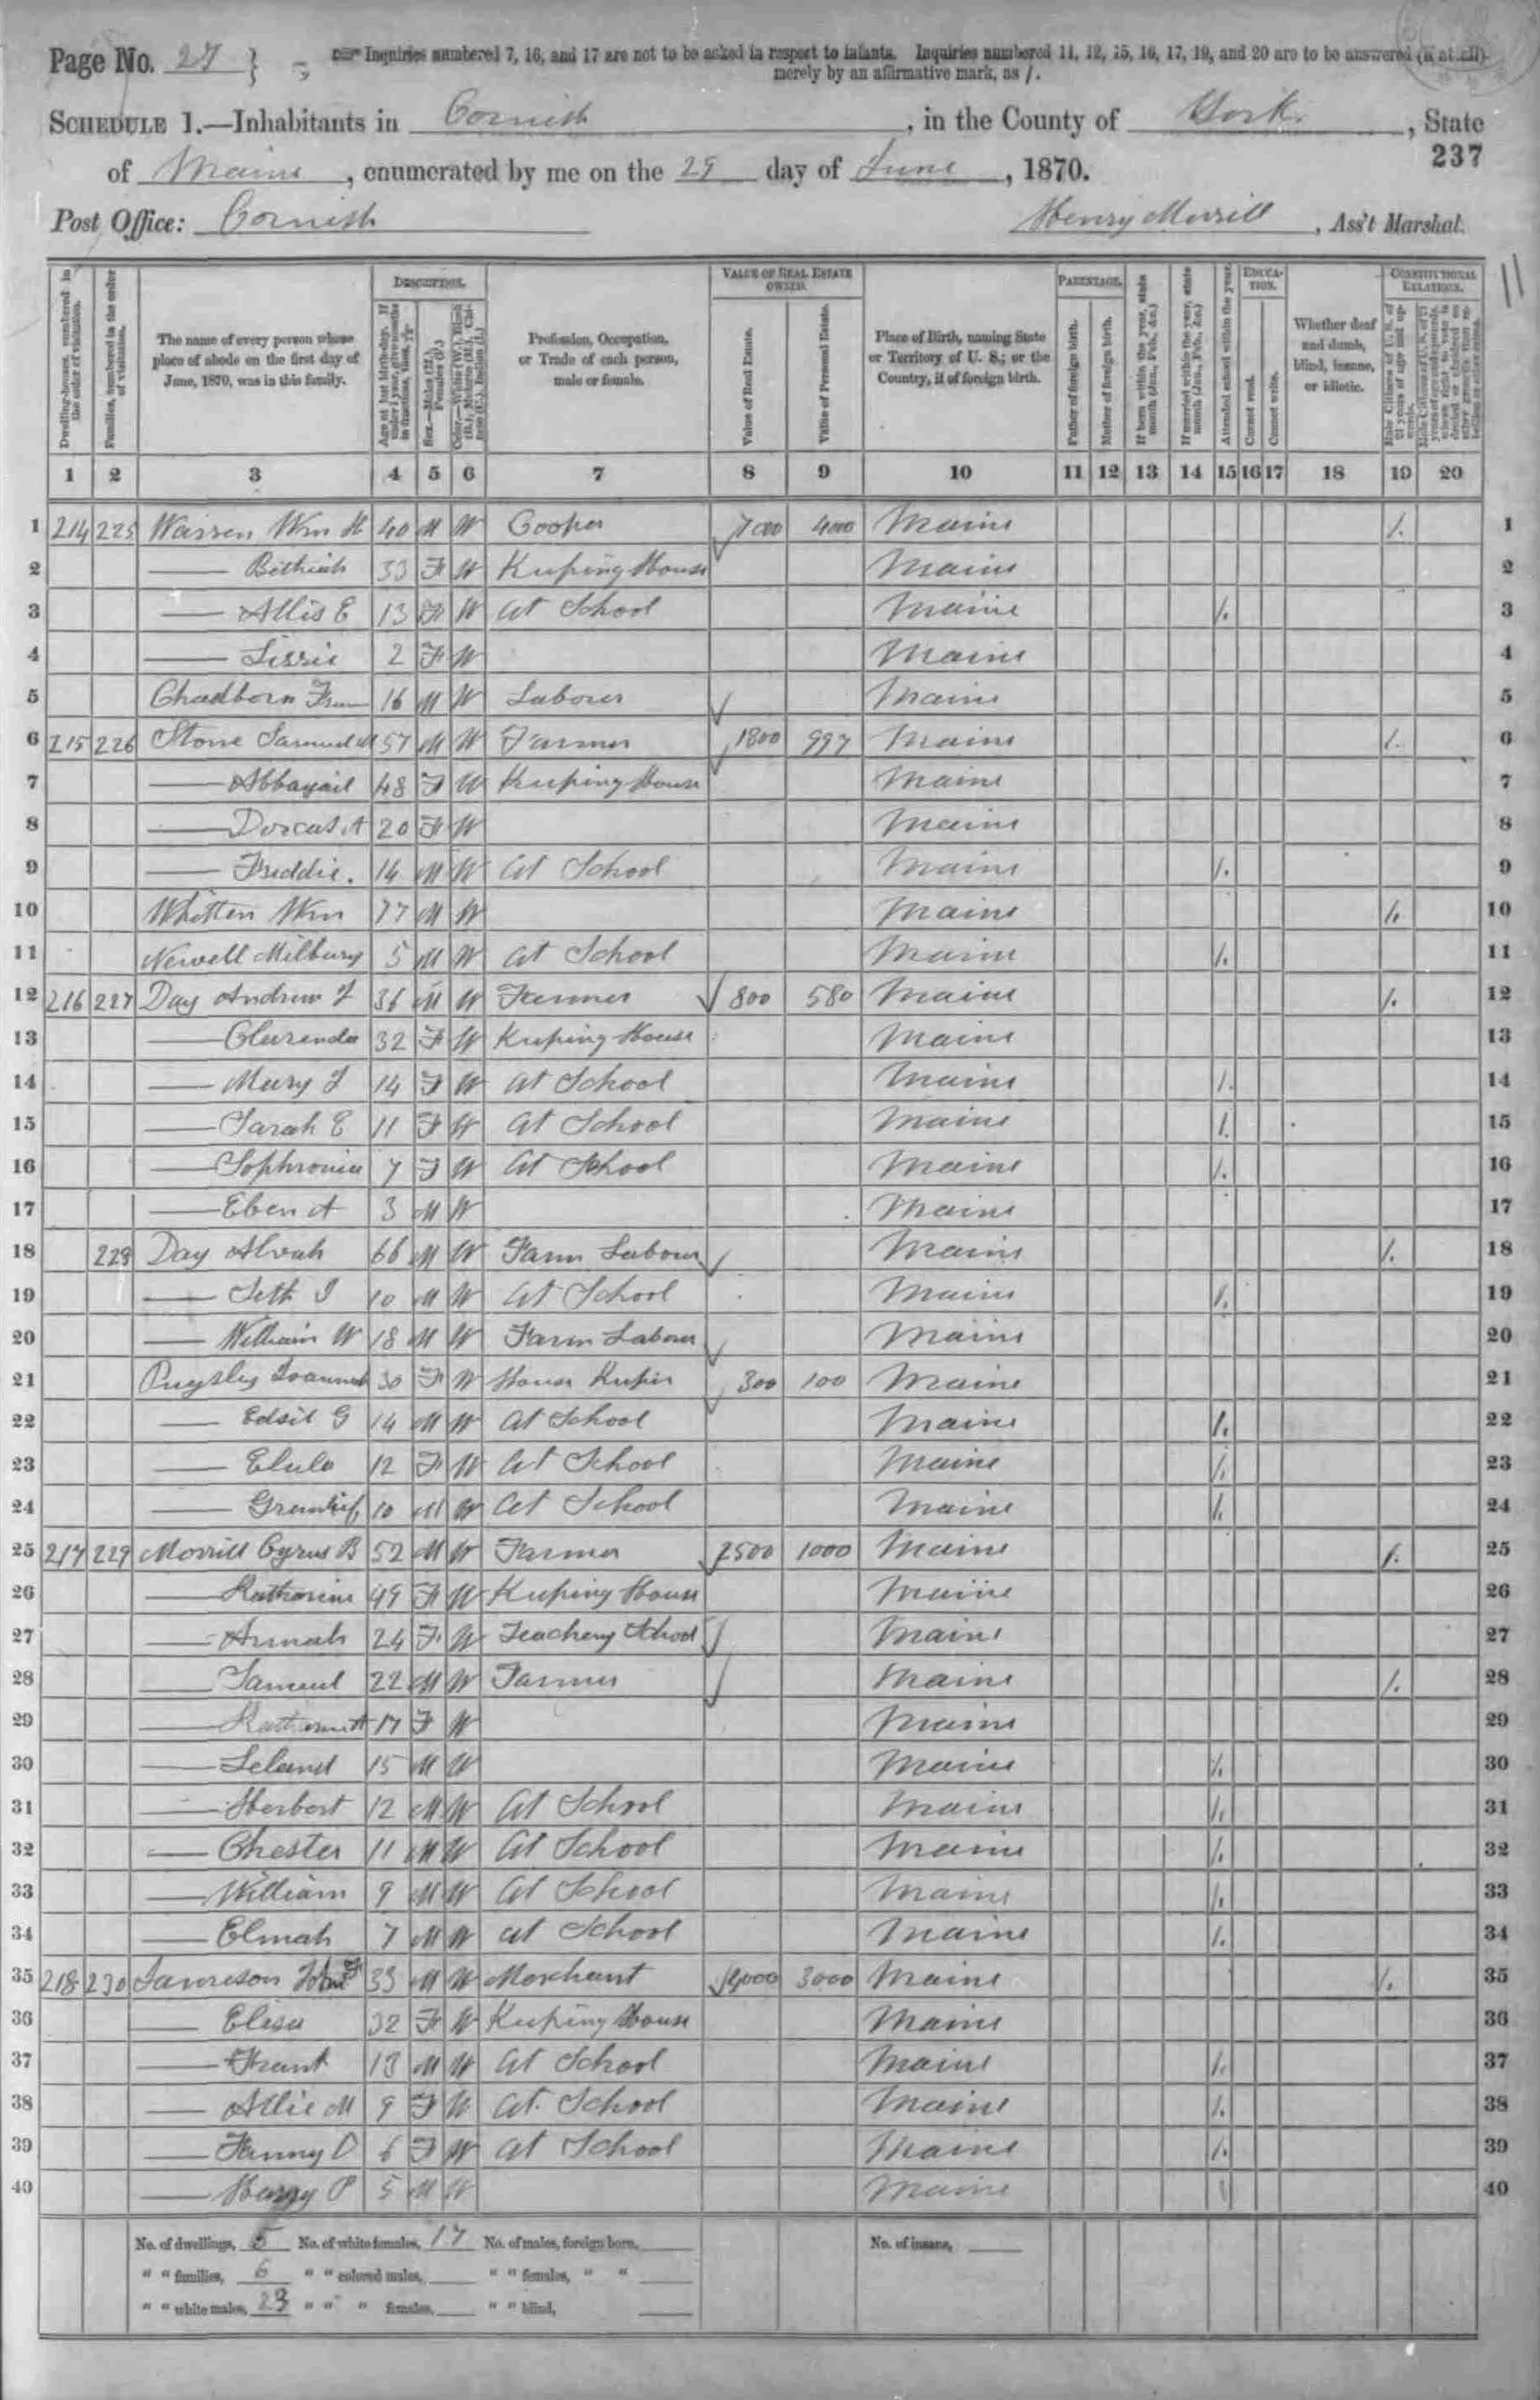 Page No. 27 } Inquiries numbered 7, 16, and 17 are not to be asked in respect to infants. Inquiries numbered 11, 12, 15, 16, 17, 19, and 20 are to be answered (if at all)
merely by an affirmative mark, as /.
SCHEDULE 1.—Inhabitants in Cornish, in the County of York, State
237
of Maine, enumerated by me on the 29 day of June, 1870.
Post Office: Cornish Henry Morrill, Ass't Marshal.
11
Dwelling-houses, numbered in the order of visitation.
Families, numbered in the order of visitation.
The name of every person whose place of abode on the first day of June, 1870, was in this family.
DESCRIPTION.
Age at last birth-day. If under 1 year, give months in fractions, thus, 3/12
Sex.—Males (M.), Females (F.)
Color.—White (W.), Black (B.), Mulatto (M.), Chinese (C.), Indian (I.)
Profession, Occupation, or Trade of each person, male or female.
VALUE OF REAL ESTATE OWNED.
Value of Real Estate.
Value of Personal Estate.
Place of Birth, naming State or Territory of U. S.; or the Country, if of foreign birth.
PARENTAGE.
Father of foreign birth.
Mother of foreign birth.
If born within the year, state month (Jan., Feb., &c.)
If married within the year, state month (Jan., Feb., &c.)
Attended school within the year.
EDUCATION.
Cannot read.
Cannot write.
Whether deaf and dumb, blind, insane, or idiotic.
CONSTITUTIONAL RELATIONS.
Male Citizens of U. S. of 21 years of age and upwards.
1 2 3 4 5 6 7 8 9 10 11 12 13 14 15 16 17 18 19 20
1 214 225 Warren Wm H 40 M W Cooper 400 Maine /. 1
2 — Bethiah 33 F W Keeping House Maine 2
3 — Allis E 13 F W At School Maine /. 3
4 — Lizzie 2 F W Maine 4
5 Chadborn 16 M W Laborer Maine 5
6 215 226 Stone Samuel M 57 M W Farmer 1800 997 Maine /. 6
7 — Abbagail 48 F W Keeping House Maine 7
8 — Dorcas A 20 F W Maine 8
9 — Freddie. 14 M W At School Maine /. 9
10 Whitten Wm 77 M W Maine /. 10
11 Newell Milbury 5 M W At School Maine /. 11
12 216 227 Day Andrew J 36 M W Farmer 800 580 Maine /. 12
13 — Clarenda 32 F W Keeping House Maine 13
14 — Mary J 14 F W At School Maine /. 14
15 — Sarah E 11 F W At School Maine /. 15
16 — Sophronia 7 F W At School Maine /. 16
17 — Eben A 3 M W Maine 17
18 228 Day Alvah 66 M W Farm Laborer Maine /. 18
19 — Seth J 10 M W At School Maine /. 19
20 — William W 18 M W Farm Laborer Maine 20
21 Pugsley 30 F W House Keeper 300 100 Maine 21
22 — Edsil G 14 M W At School Maine /. 22
23 — Elula 12 F W At School Maine /. 23
24 — Greenlief 10 M W At School Maine /. 24
25 217 229 Morrill Cyrus B 52 M W Farmer 2500 1000 Maine /. 25
26 — Katharine 49 F W Keeping House Maine 26
27 — Annah 24 F W Teaching School Maine 27
28 — Samuel 22 M W Farmer Maine /. 28
29 — 17 F W Maine 29
30 — Leland 15 M W Maine /. 30
31 — Herbert 12 M W At School Maine /. 31
32 — Chester 11 M W At School Maine /. 32
33 — William 9 M W At School Maine /. 33
34 — Elmah 7 M W At School Maine /. 34
35 218 230 Jameson John 33 M W Merchant 3000 Maine /. 35
36 — Elisa 32 F W Keeping House Maine 36
37 — Frank 13 M W At School Maine /. 37
38 — Allie M 9 F W At School Maine /. 38
39 — Fanny D 6 F W At School Maine /. 39
40 — Harry P 5 M W Maine / 40
No. of dwellings, 5 No. of white females, 17 No. of males, foreign born, No. of insane,
" " families, 6 " " colored males, " " females, " "
" " white males, 23 " " " females, " " blind,